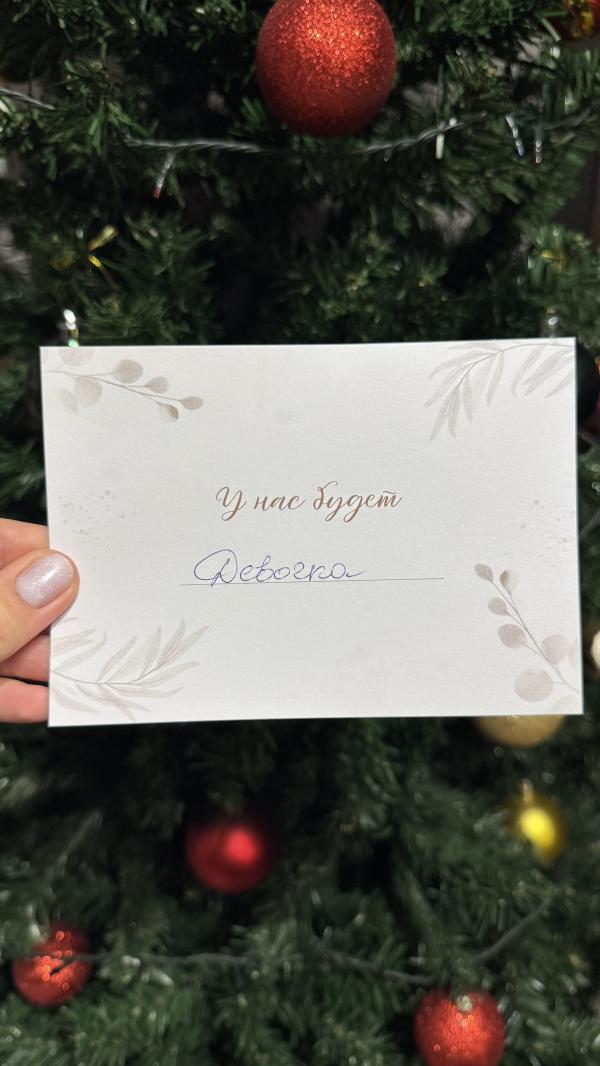 У нас будет
Девочка